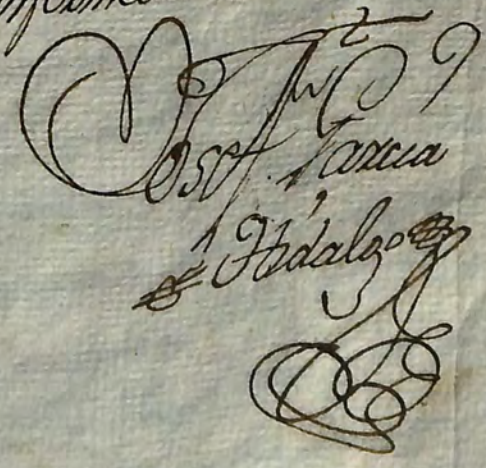 Josef. Garcia
Hidalgo